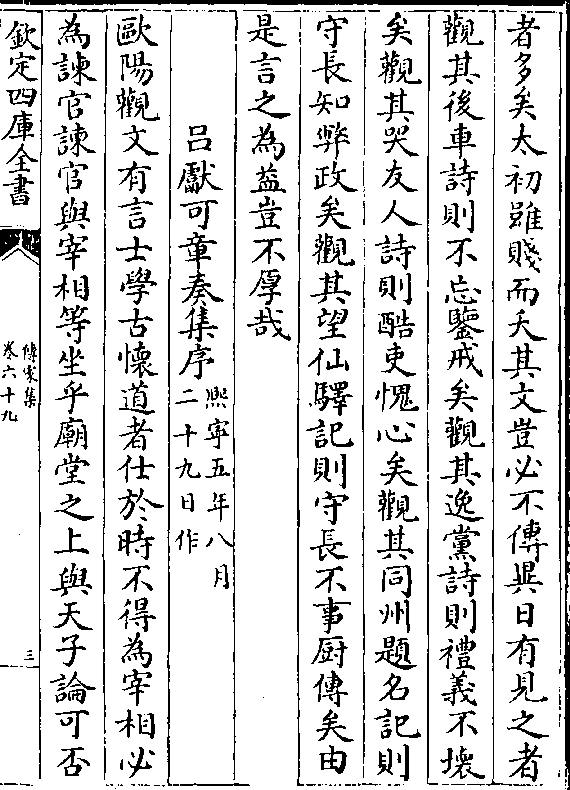 者多矣太初雖賤而夭其文豈必不傳異日有見之者
觀其後車詩則不忘鑒戒矣觀其逸黨詩則禮義不壞
矣觀其哭友人詩則酷吏愧心矣觀其同州題名記則
守長知弊政矣觀其望仙驛記則守長不事厨傳矣由
是言之為益豈不厚哉
吕獻可章奏集序熙寧五年八月
二十九日作
歐陽觀文有言士學古懷道者仕於時不得為宰相必
為諫官諫官與宰相等坐乎廟堂之上與天子論可否
欽定四庫全書
傳家集
卷六十九
三